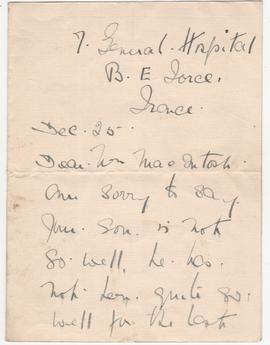 7. General. Hospital
B. E Force.
France.
Dec. 25.
Dear. Mrs MacIntosh.
Am sorry to say.
Your. Son. is not
so. well, he has.
not. been. quite so.
well for the last